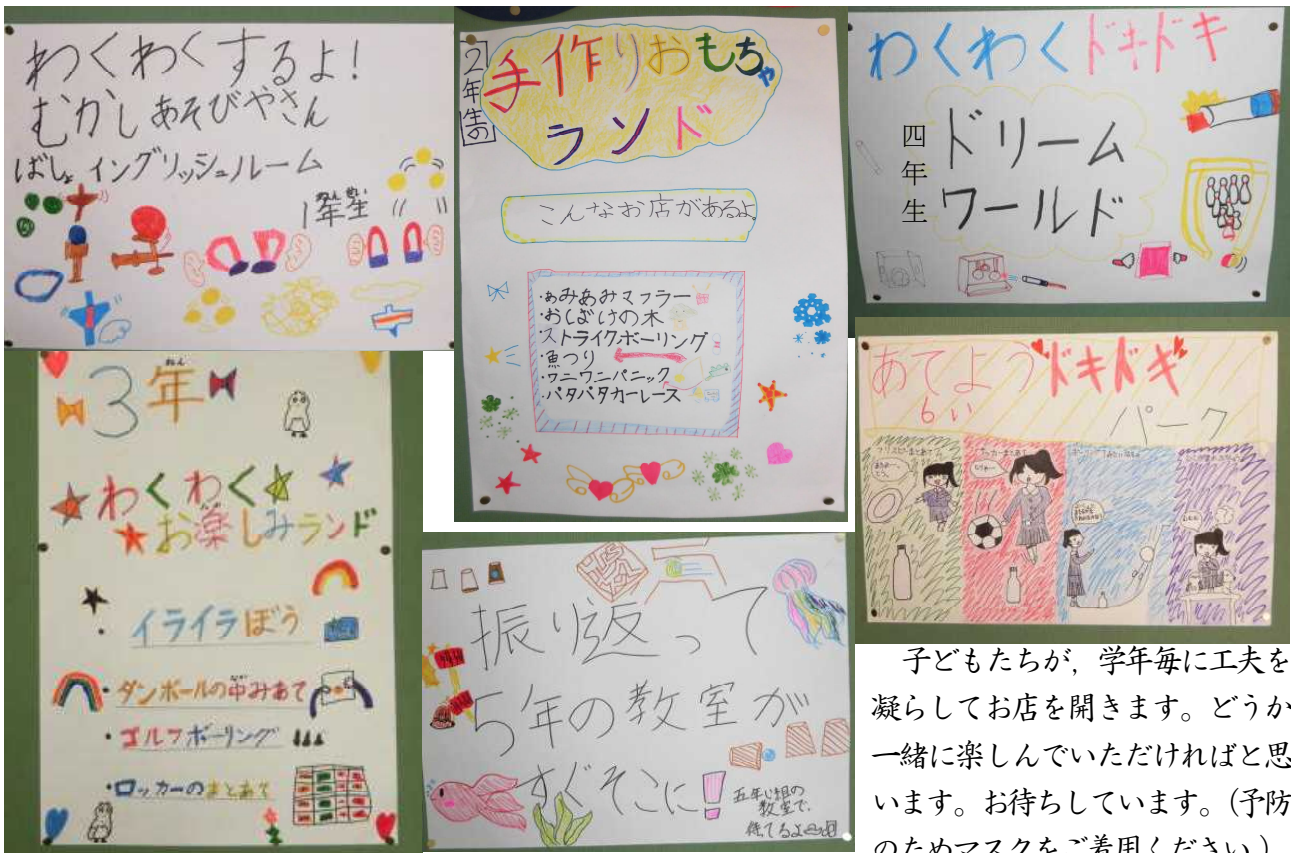 わくわくするよ!
むかしあそびやさん
ばしょ イングリッシュルーム
1年生
2年生の
手作りおもちゃ
ランド
こんなお店があるよ
・あみあみマフラー
・おしばけの木
・ストライクボーリング
・魚つり
・ワニワニパニック
・パタパタカーレース
わくわくドキドキ
四年生
ドリーム
ワールド
3年
わくわく
お楽しみランド
イライラぼう
・ダンボールの中みあて
・ゴルフボーリング
・ロッカーのまとあて
振り返って
5年の教室が
すぐそこに!
教室で
待てるよ
あてよう ドキドキ
6い
パーク
子どもたちが，学年毎に工夫を
凝らしてお店を開きます。どうか
一緒に楽しんでいただければと思
います。お待ちしています。(予防
のためマスクをご着用ください)